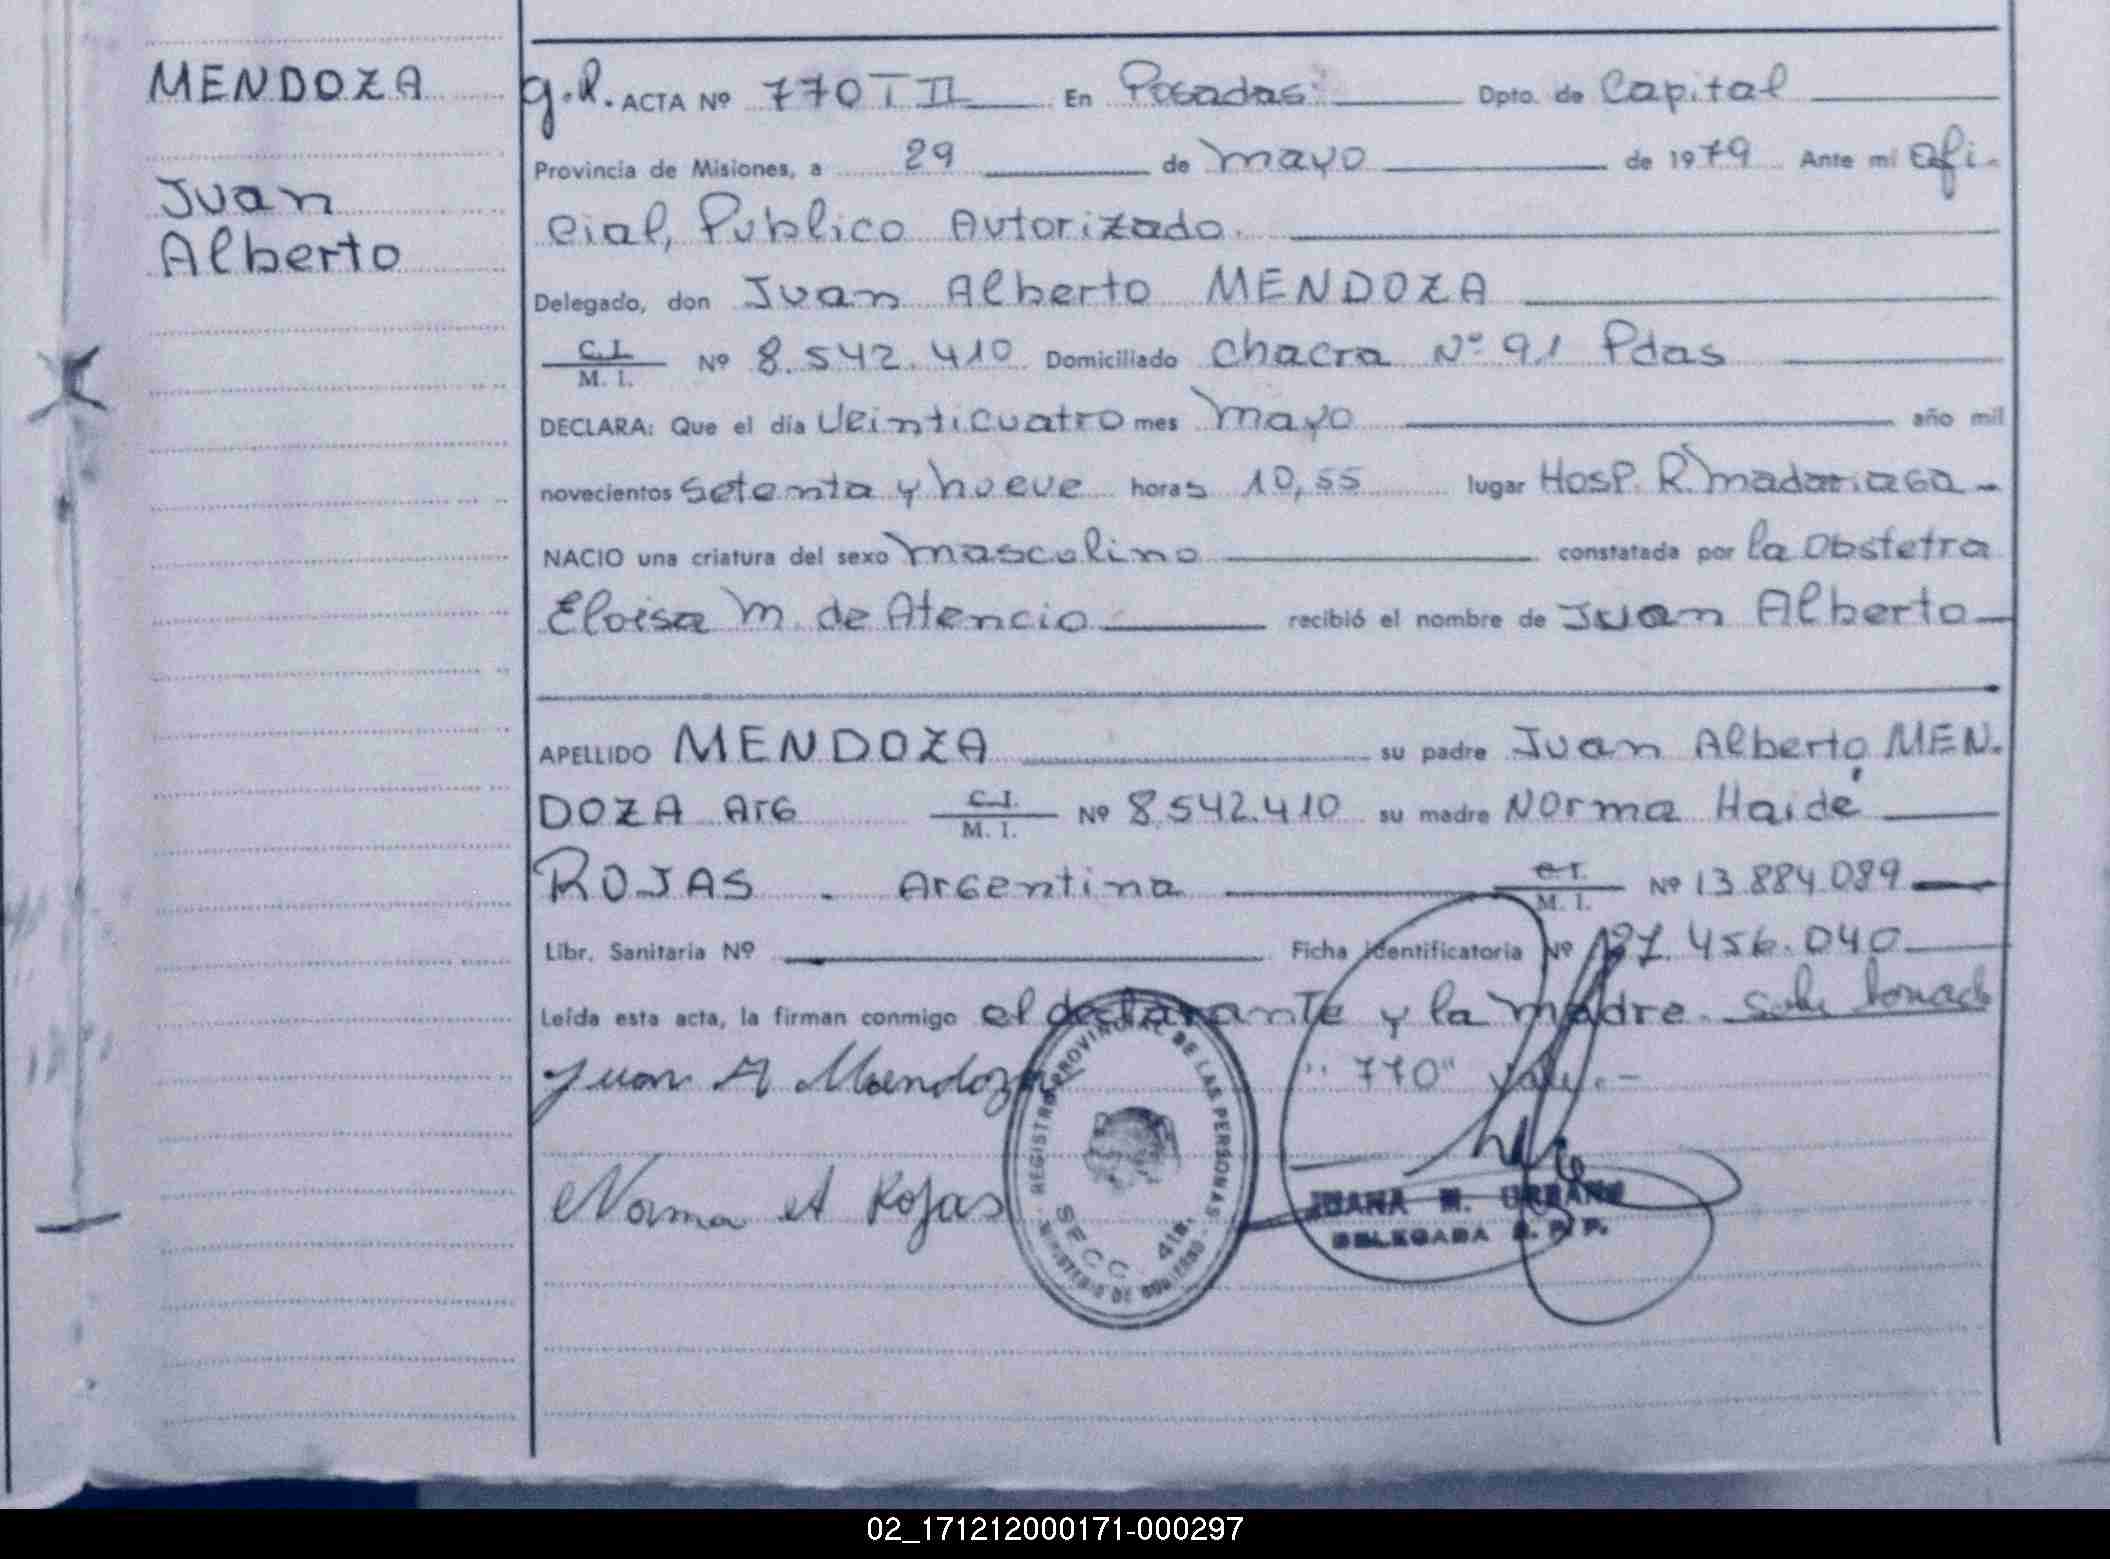 MENDOZA
Juan
Alberto
g.R. ACTA Nº 770 T II En Posadas Dpto. de Capital
Provincia de Misiones, a 29 de mayo de 1979 Ante mi Ofi-
cial, Publico Autorizado.
Delegado, don Juan Alberto MENDOZA
C.I. M. I. Nº 8.542.410 Domiciliado Chacra Nº 91 Pdas
DECLARA: Que el día Veinticuatro mes mayo año mil
novecientos setenta y nueve horas 10,55 lugar Hosp. R. madariaga -
NACIO una criatura del sexo masculino constatada por la Obstetra
Eloisa M. de Atencio recibió el nombre de Juan Alberto
APELLIDO MENDOZA su padre Juan Alberto MEN-
DOZA Arg C.I. M. I. Nº 8.542.410 su madre Norma Haidé
ROJAS. Argentina C.I. M. I. Nº 13.884.089
Libr. Sanitaria Nº Ficha identificatoria Nº 27.456.040
Leída esta acta, la firman conmigo el declarante y la madre. Sobre borrado
"770" vale.-
Juan A Mendoza
Norma A Rojas
REGISTRO PROVINCIAL DE LAS PERSONAS
SECC. 4ta.
MINISTERIO DE GOBIERNO
JUANA M. URBANO
DELEGADA R. P. P.
02_171212000171-000297